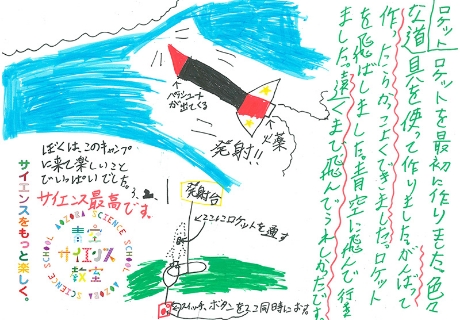 ロケット
ロケットを最初に作りました。色々
な道具を使って作りました。がんばって
作ったらかっこよくできました。ロケット
を飛ばしました。青空に飛んで行き
ました。遠くまで飛んでうれしかったです。
パラシュート
が出てくる
火薬
発射!!
ぼくは、このキャンプ
に来て楽しいこと
でいっぱいでした。
サイエンス最高です。
発射台
ここにロケットを通す
スイッチ、ボタンを2こ同時におす
サイエンスをもっと楽しく。
AOZORA SCIENCE SCHOOL
青空
サイエンス
教室
AOZORA SCIENCE SCHOOL